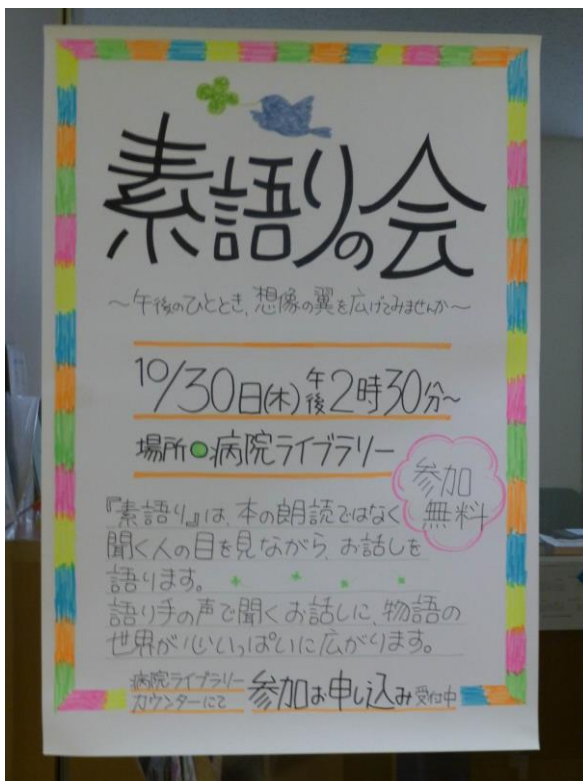 素語りの会
～午後のひととき、想像の翼を広げてみませんか～
10/30日(木)午後2時30分～
場所●病院ライブラリー
参加
無料
『素語り』は、本の朗読ではなく
聞く人の目を見ながら、お話しを
語ります。
語り手の声で聞くお話しに、物語の
世界が心いっぱいに広がります。
病院ライブラリー
カウンターにて 参加お申し込み受付中